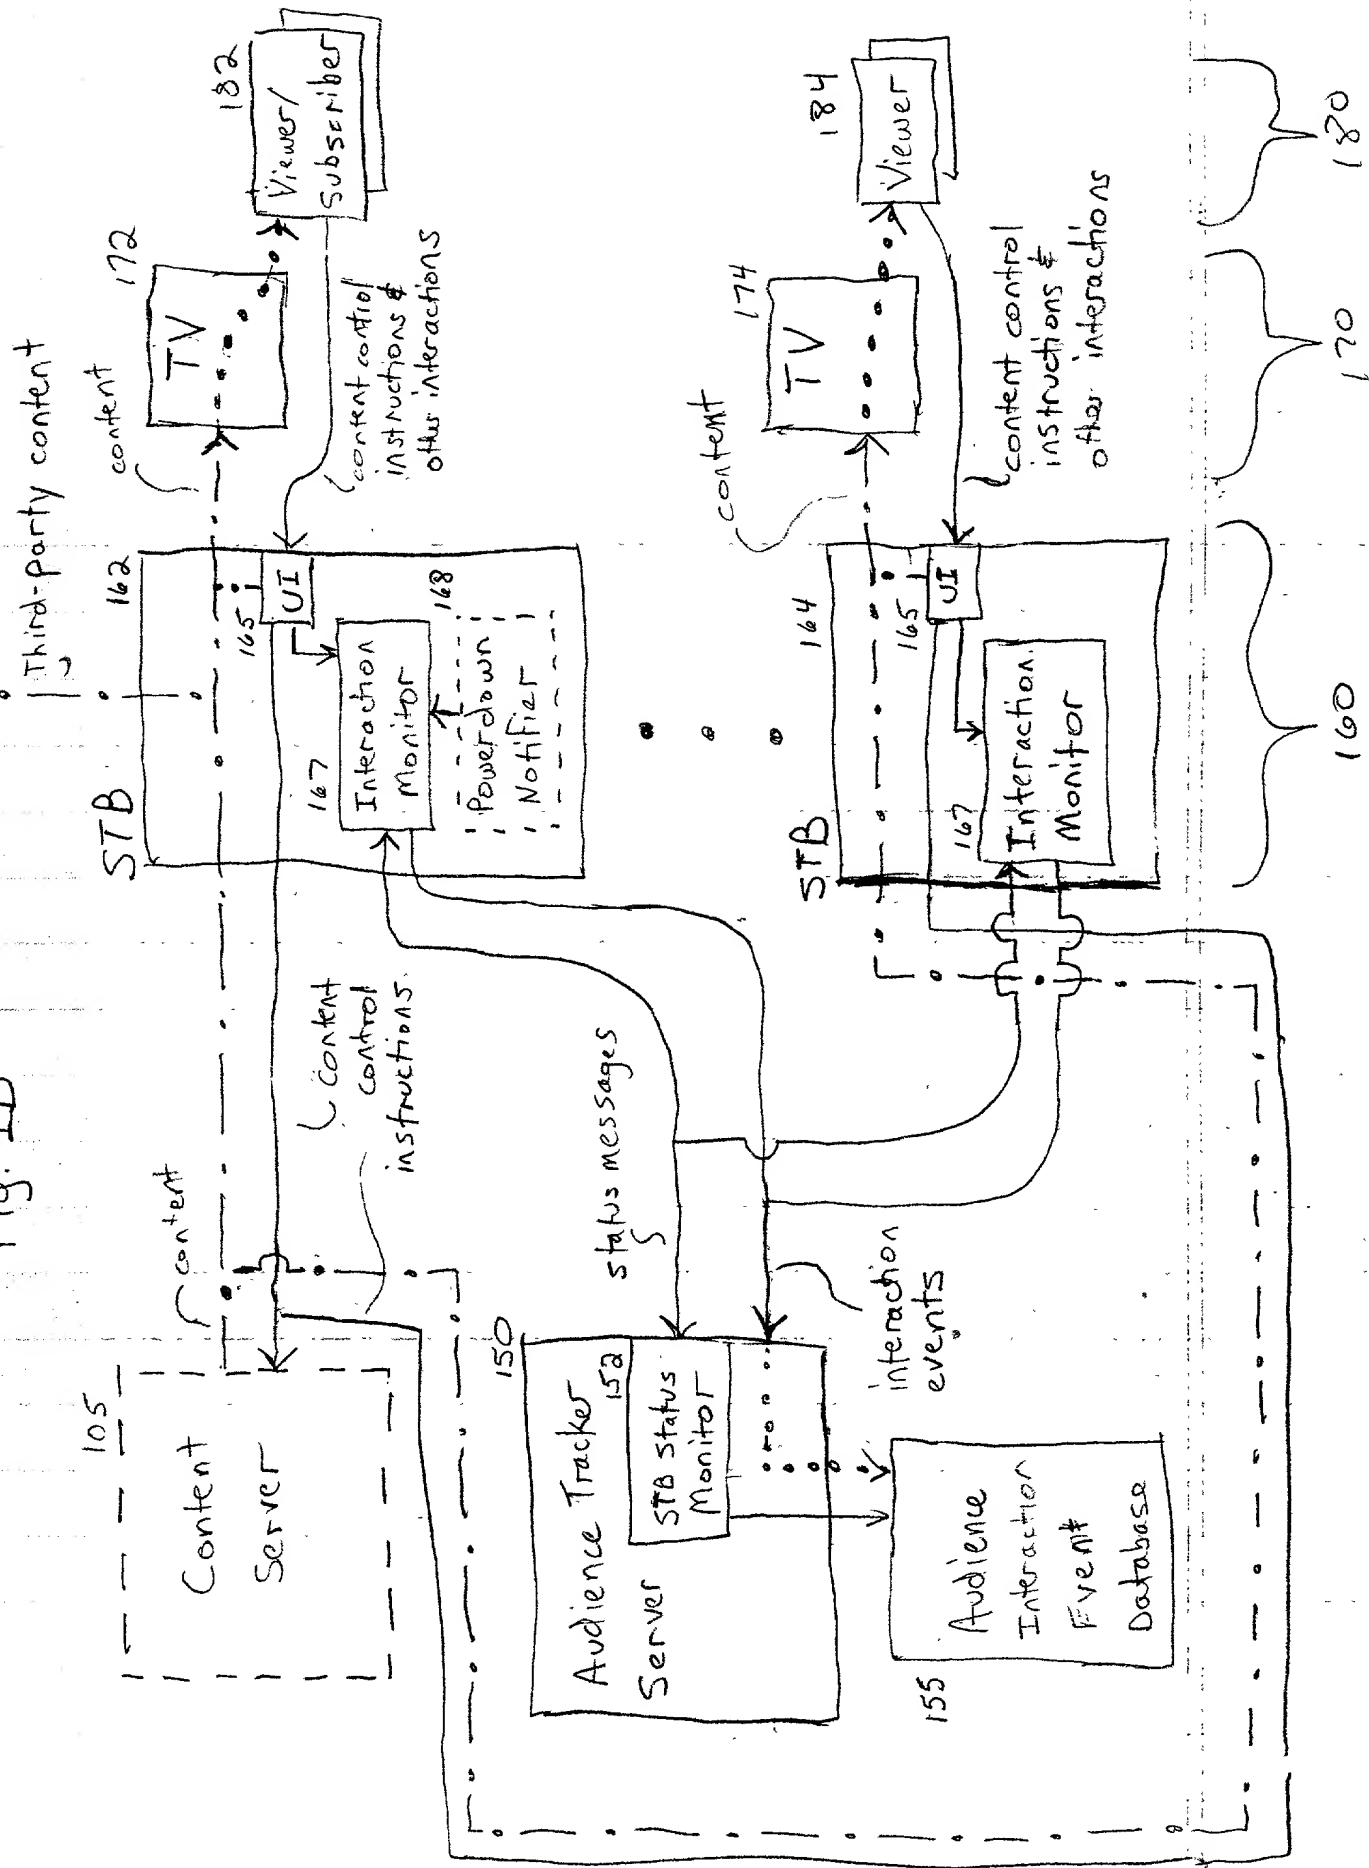 Fig. 1B
Third-party content
105
Content
Server
content
Content
control
instructions
STB
162
165
UI
167
Interaction
Monitor
168
Powerdown
Notifier
content
172
TV
182
Viewer/
Subscriber
content control
instructions &
other interactions
150
Audience Tracker
Server
152
STB Status
Monitor
status messages
interaction
events
155
Audience
Interaction
Event
Database
STB
164
165
UI
167
Interaction
Monitor
content
174
TV
184
Viewer
content control
instructions &
other interactions
160
170
180